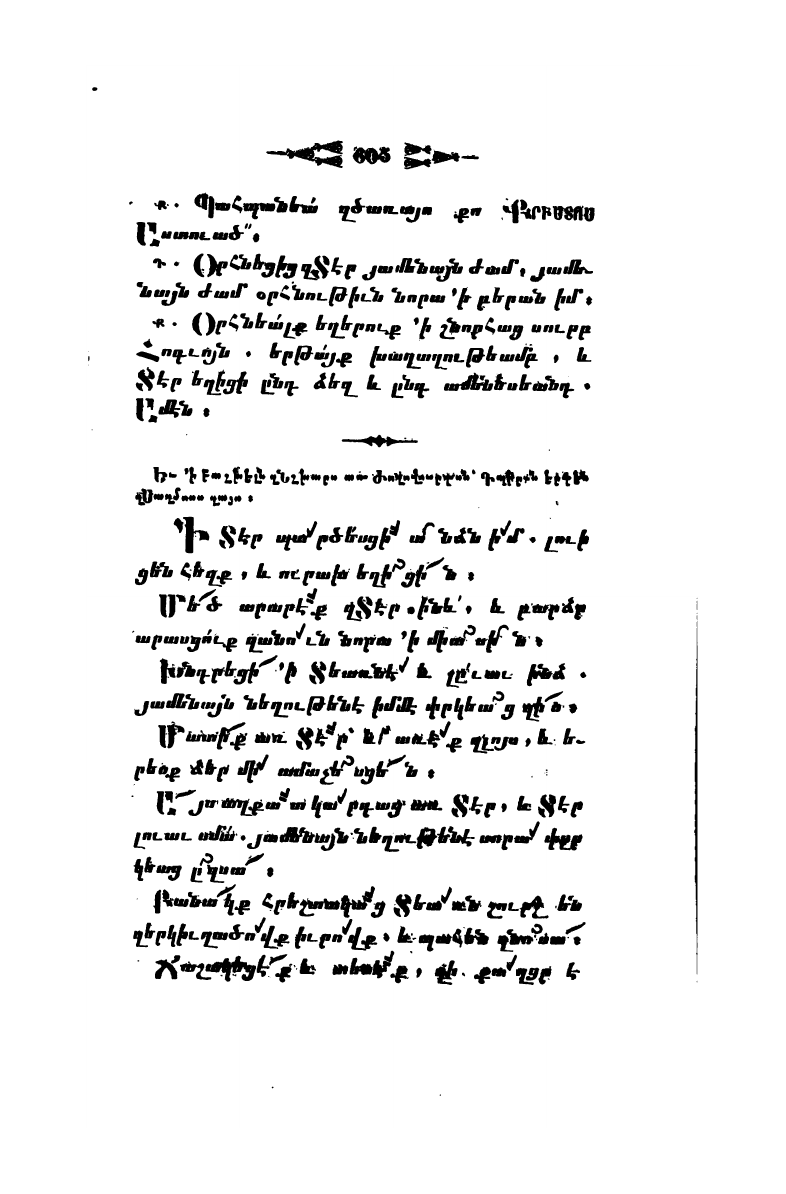 605
ք. Պահպանեա՛ զծառայս քո Քրիստոս
Աստուած՛՛։
դ. Օրհնեցից զՏէր յամենայն ժամ, յամե-
նայն ժամ օրհնութիւն նորա ՚ի բերան իմ։
ք. Օրհնեա՛լք եղերուք ՚ի շնորհաց սուրբ
Հոգւոյն. երթա՛յք խաղաղութեամբ, և
Տէր եղիցի ընդ ձեզ և ընդ ամենեսեանդ.
Ամէն։
՚ի բաշխելն զնշխարս առ ժողովուրդսն՝ Դպիրքն երգեն
զՍաղմոսս զայս։
՚Ի Տէր պարծեսցի անձն իմ. լուի
ցեն հեզք, և ուրախ եղիցին։
Մեծ արարէք զՏէր ինև, և բարձր
արասցուք զանուն նորա ՚ի միասին։
Խնդրեցի ՚ի Տեառնէ և լըւաւ ինձ.
յամենայն նեղութենէ իմմէ փրկեաց զիս։
Մատիք առ Տէր՝ և առէք զլոյս, և ե-
րեսք ձեր մի ամաչեսցեն։
Այս աղքատ կարդաց առ Տէր, և Տէր
լուաւ սմա. յամենայն նեղութենէ սորա փըր
կեաց ըզսա։
Բանակք հրեշտակաց Տեառն շուրջ են
զերկիւղածովք իւրովք, և պահեն զնոսա։
Ճաշակեցէք և տեսէք, զի քաղցր է